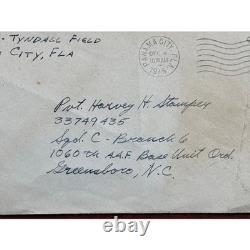 - TYNDALL FIELD
CITY, FLA
PANAMA CITY, FLA.
Pvt. Harvey H. Stamper
33749435
Sqd. C - Branch 6
1060th AAF Base Unit Ord.
Greensboro, N.C.
ebay